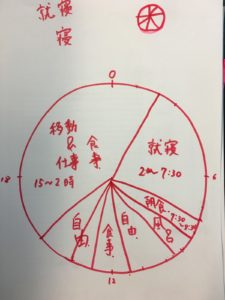 就寝
寝
0
移動
&
仕事
食事
15〜2時
就寝
2〜7:30
18
6
朝食
風呂
7:30
〜8:30
自由
食事
自由
12